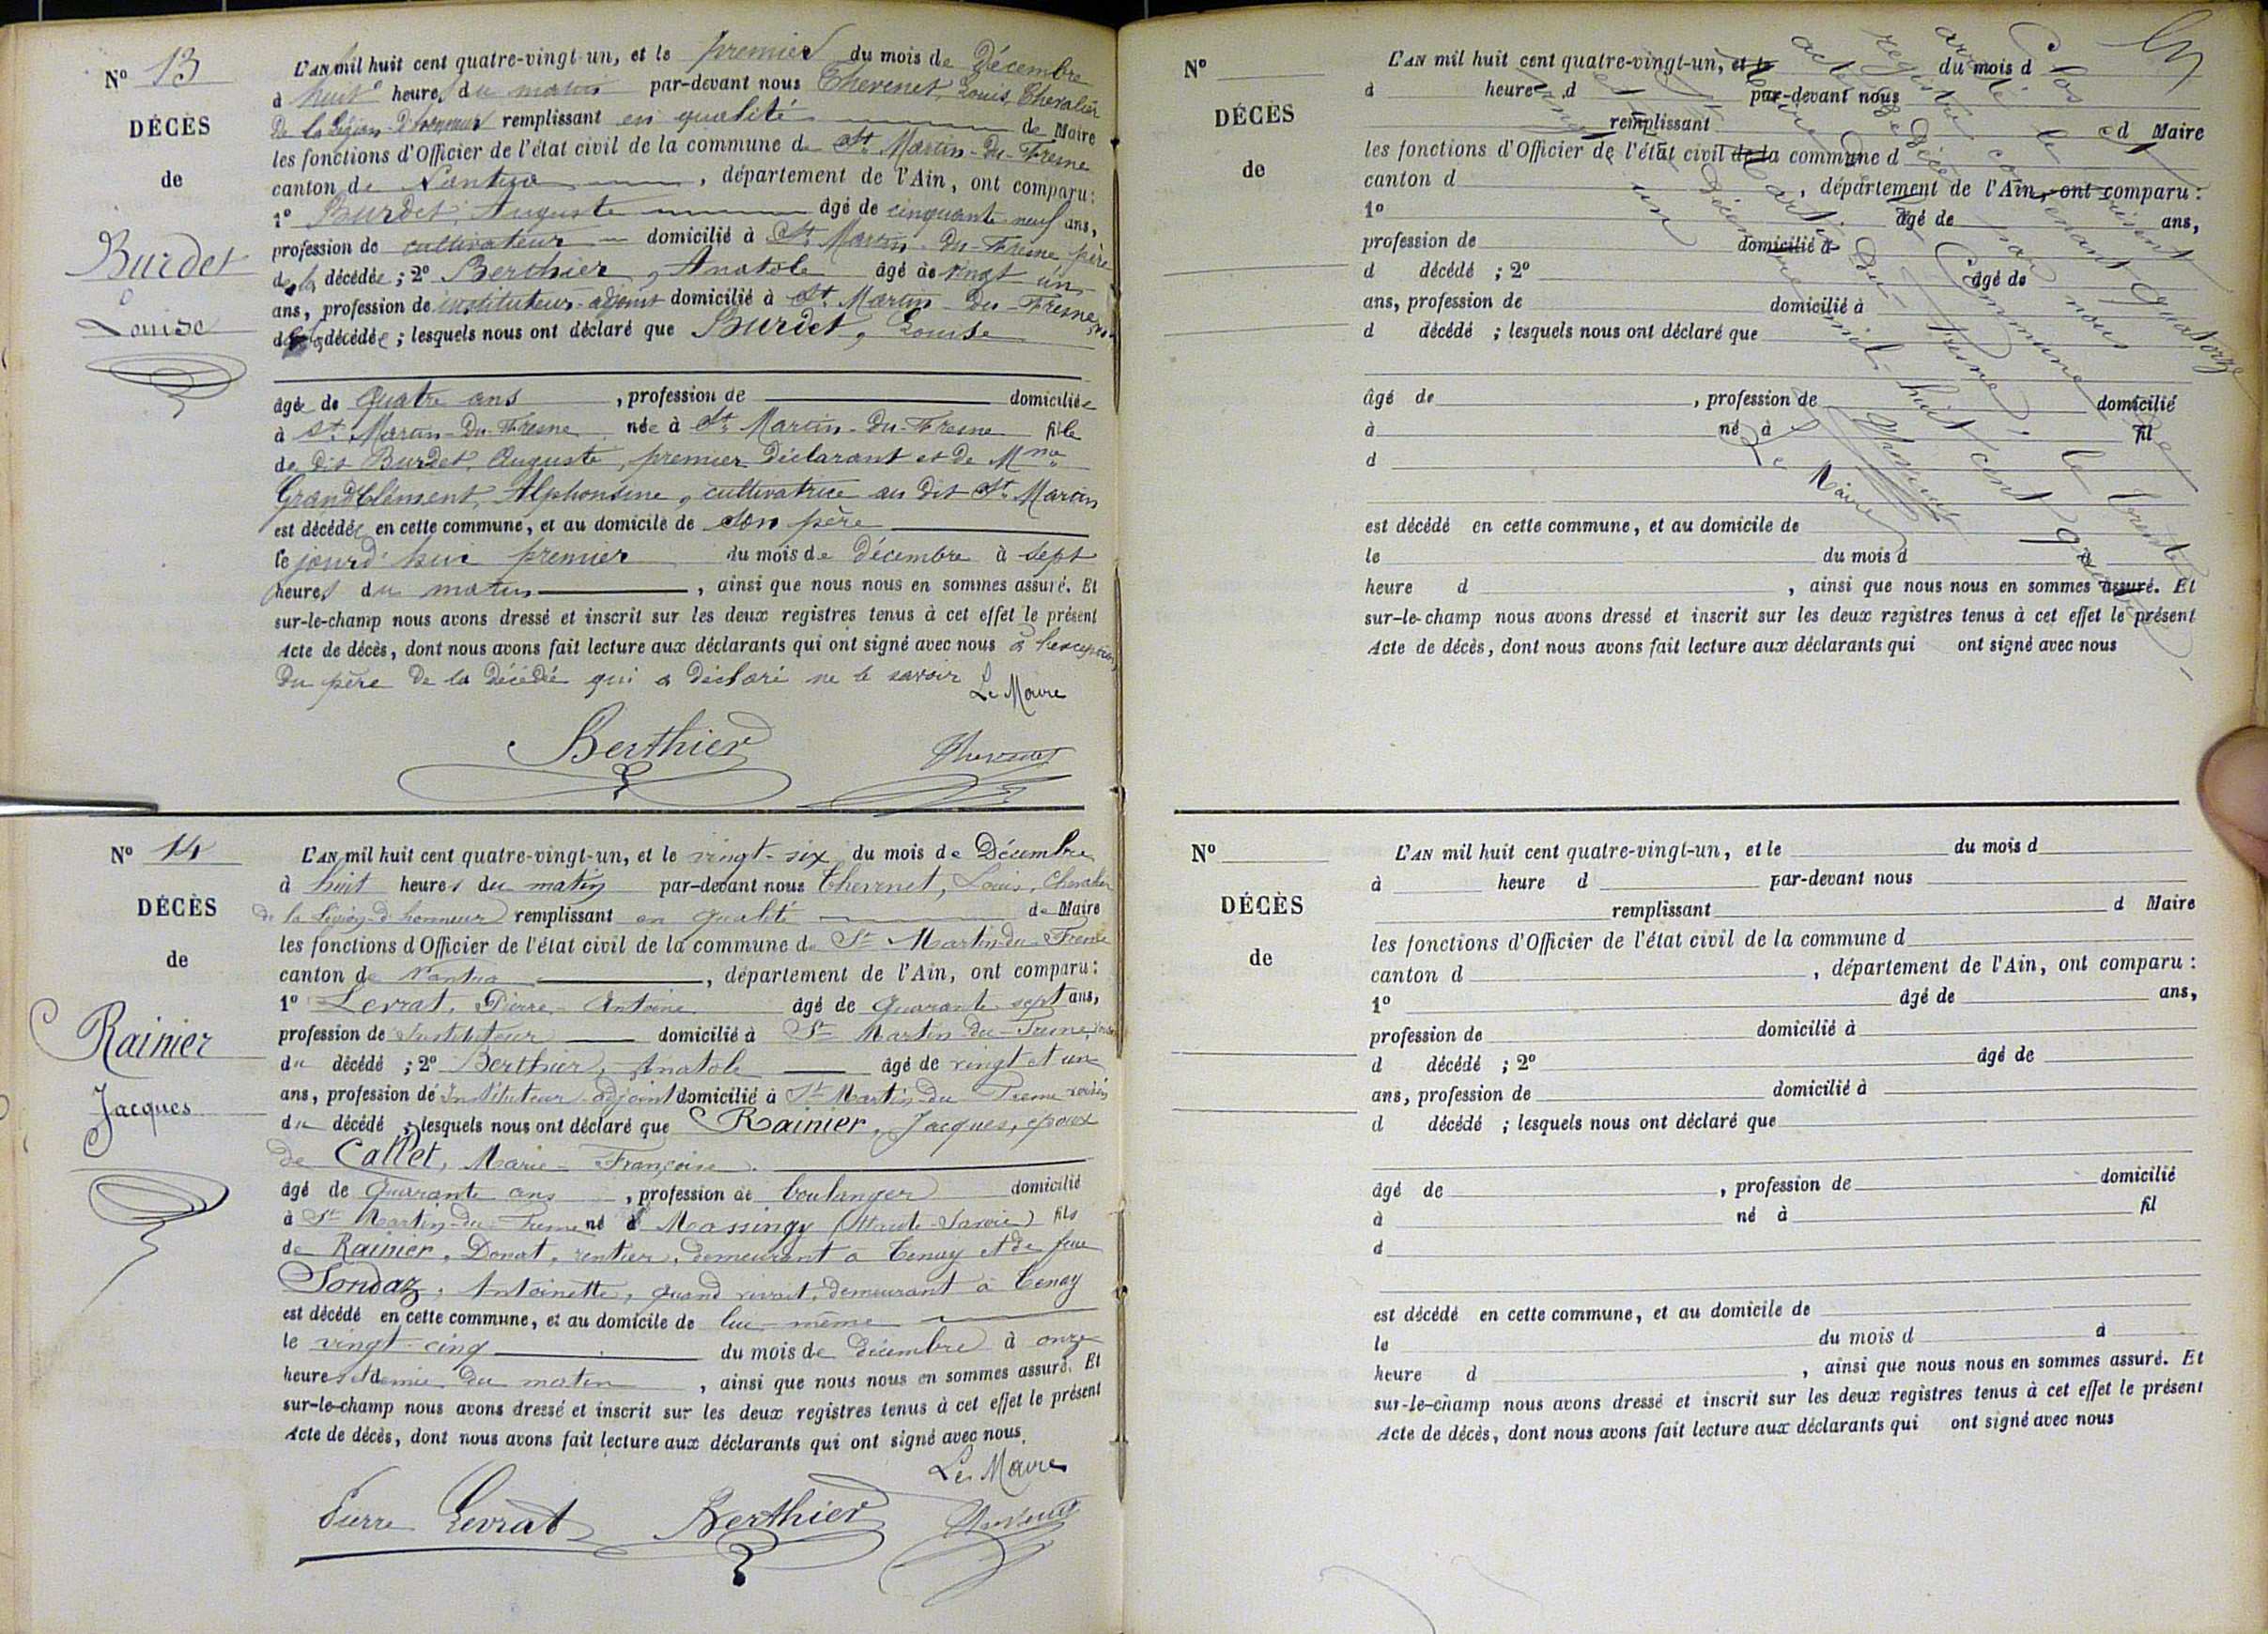 N° 13
DÉCÈS
de
Burdet
Louise
L'AN mil huit cent quatre-vingt-un, et le premier du mois de Décembre
à huit heures du matin par-devant nous Thevenet, Louis, Chevalier
de la Légion d'honneur remplissant en qualité de Maire
les fonctions d'Officier de l'état civil de la commune de St Martin-du-Fresne
canton de Nantua, département de l'Ain, ont comparu:
1° Burdet, Auguste âgé de cinquante-neuf ans,
profession de cultivateur domicilié à St Martin-du-Fresne père
de la décédée; 2° Berthier, Anatole âgé de vingt un
ans, profession de instituteur-adjoint domicilié à St Martin-du-Fresne
de la décédée; lesquels nous ont déclaré que Burdet, Louise
âgée de quatre ans, profession de domiciliée
à St Martin-du-Fresne née à St Martin-du-Fresne fille
de dit Burdet, Auguste, premier déclarant et de Mme
Grandclément, Alphonsine, cultivatrice au dit St Martin
est décédée en cette commune, et au domicile de son père
le jourd'hui premier du mois de décembre à sept
heures du matin, ainsi que nous nous en sommes assuré. Et
sur-le-champ nous avons dressé et inscrit sur les deux registres tenus à cet effet le présent
Acte de décès, dont nous avons fait lecture aux déclarants qui ont signé avec nous à l'exception
du père de la décédée qui a déclaré ne le savoir
Le Maire
Berthier Thevenet
N° 14
DÉCÈS
de
Rainier
Jacques
L'AN mil huit cent quatre-vingt-un, et le vingt-six du mois de Décembre
à huit heures du matin par-devant nous Thevenet, Louis, Chevalier
de la Légion d'honneur remplissant en qualité de Maire
les fonctions d'Officier de l'état civil de la commune de St Martin-du-Fresne
canton de Nantua, département de l'Ain, ont comparu:
1° Levrat, Pierre-Antoine âgé de quarante sept ans,
profession de Instituteur domicilié à St Martin-du-Fresne,
du décédé; 2° Berthier, Anatole âgé de vingt et un
ans, profession de Instituteur-adjoint domicilié à St Martin-du Fresne voisin
du décédé; lesquels nous ont déclaré que Rainier, Jacques, époux
de Callet, Marie-Françoise.
âgé de quarante ans, profession de boulanger domicilié
à St Martin-du-Fresne né à Massingy (Haute-Savoie) fils
de Rainier, Donat, rentier, demeurant à Tenay et de feue
Sondaz, Antoinette, quand vivait, demeurant à Tenay
est décédé en cette commune, et au domicile de lui-même
le vingt-cinq du mois de décembre à onze
heures et demie du matin, ainsi que nous nous en sommes assuré. Et
sur-le-champ nous avons dressé et inscrit sur les deux registres tenus à cet effet le présent
Acte de décès, dont nous avons fait lecture aux déclarants qui ont signé avec nous.
Le Maire
Pierre Levrat Berthier Thevenet
N°
DÉCÈS
de
L'AN mil huit cent quatre-vingt-un, et le du mois d
à heure d par-devant nous
remplissant d Maire
les fonctions d'Officier de l'état civil de la commune d
canton d, département de l'Ain, ont comparu:
1° âgé de ans,
profession de domicilié à
d décédé ; 2° âgé de
ans, profession de domicilié à
d décédé ; lesquels nous ont déclaré que
âgé de, profession de domicilié
à né à fil
d
est décédé en cette commune, et au domicile de
le du mois d à
heure d, ainsi que nous nous en sommes assuré. Et
sur-le-champ nous avons dressé et inscrit sur les deux registres tenus à cet effet le présent
Acte de décès, dont nous avons fait lecture aux déclarants qui ont signé avec nous
Clos
arrêté le présent
registre contenant quatorze
actes de Décès par nous
Maire de la Commune de
St Martin du Fresne, le trente
et un Décembre mil-huit cent quatre
vingt un
Le Maire
Thevenet
N°
DÉCÈS
de
L'AN mil huit cent quatre-vingt-un, et le du mois d
à heure d par-devant nous
remplissant d Maire
les fonctions d'Officier de l'état civil de la commune d
canton d, département de l'Ain, ont comparu:
1° âgé de ans,
profession de domicilié à
d décédé ; 2° âgé de
ans, profession de domicilié à
d décédé ; lesquels nous ont déclaré que
âgé de, profession de domicilié
à né à fil
d
est décédé en cette commune, et au domicile de
le du mois d à
heure d, ainsi que nous nous en sommes assuré. Et
sur-le-champ nous avons dressé et inscrit sur les deux registres tenus à cet effet le présent
Acte de décès, dont nous avons fait lecture aux déclarants qui ont signé avec nous